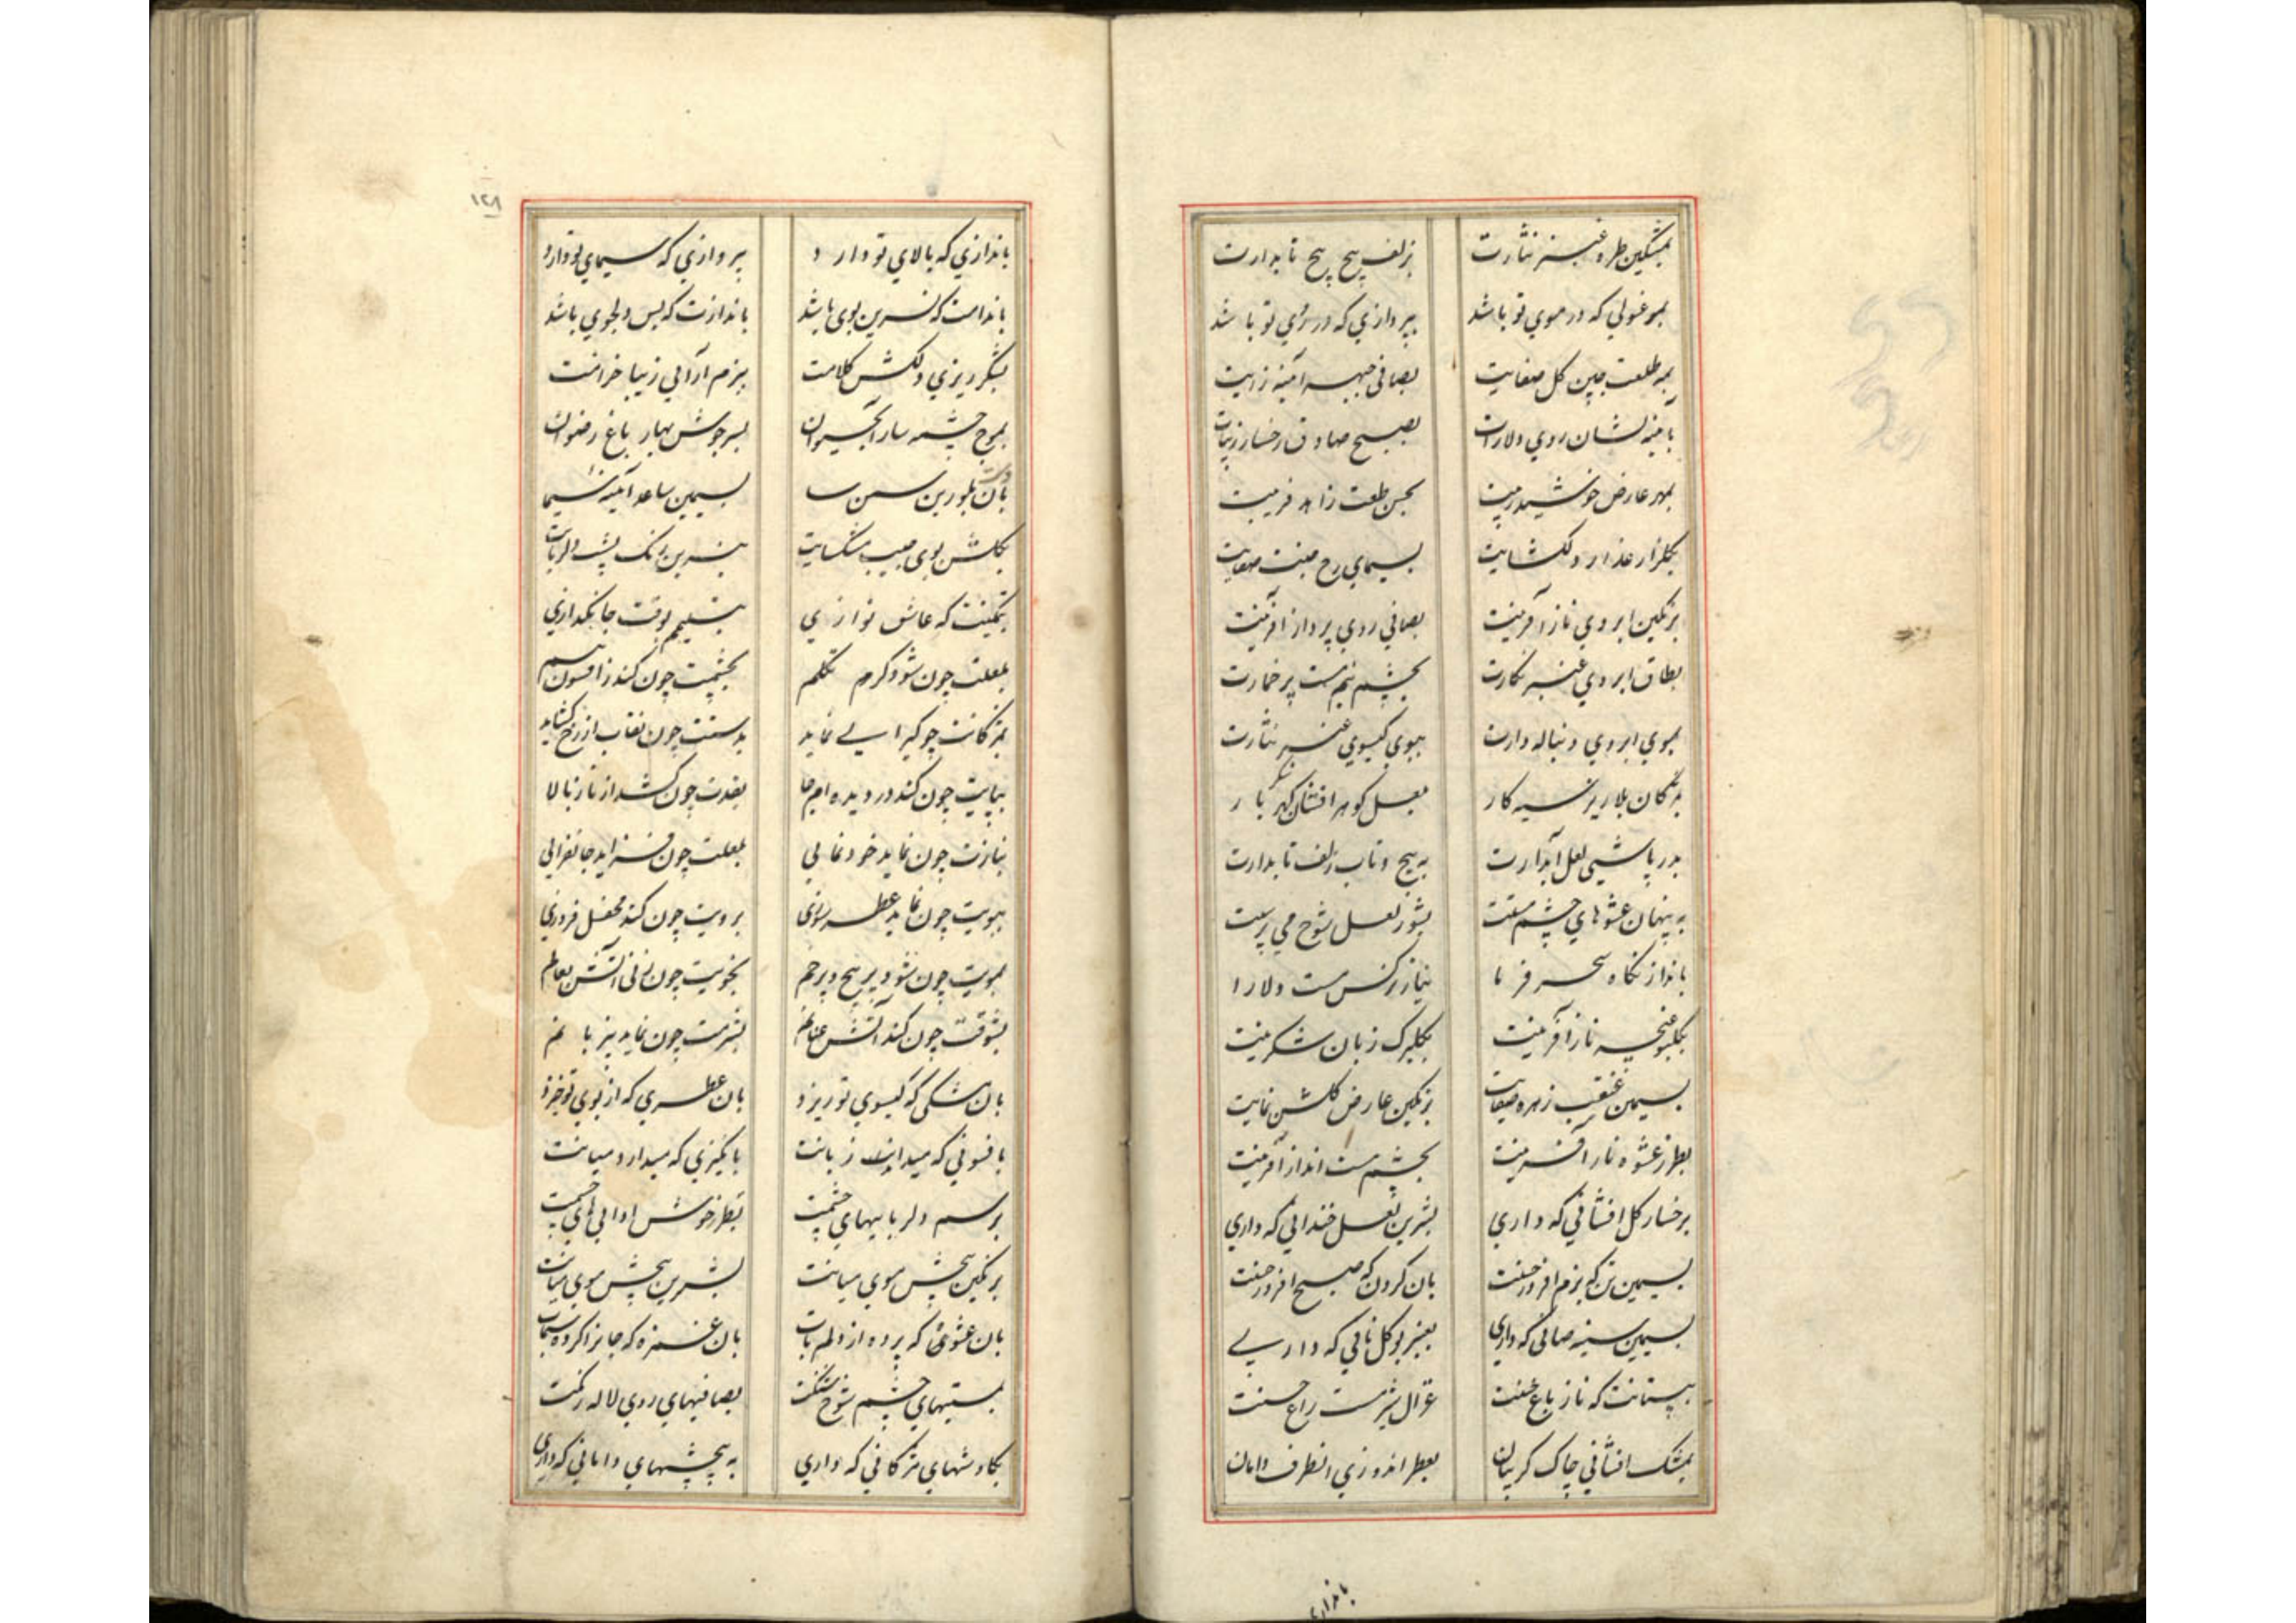 بمشکین طره عنبر نثارت بزلف پیچ پیچ تابدارت
بمرغولی که در موی تو باشد بپردازی که در روی تو باشد
بمه طلعت جبین کل صفایت بصافی جبهه آینه زایت
بآینه نشان روی دلارات بصبح صادق رخسار زیبات
بمهر عارض خورشید زیبت بحسن طلعت زاهد فریبت
بکلزار عذار دلکشایت بسیمای رخ جنت صفایت
برنکین ابروی ناز آفرینت بصافی روی پرداز آفرینت
بطاق ابروی عنبر نکارت بچشم نیم مست پر خمارت
بموی ابروی دنباله دارت ببوی کیسوی عنبر نثارت
بمژکان بلا ریز سیه کار بلعل کوهر افشان شکر بار
بدر پاشی لعل آبدارت به پیچ و تاب زلف تابدارت
به پنهان عشوهای چشم مستت بشور لعل شوخ می پرستت
بانداز نکاه سحر فرما بناز نرکس مست دلارا
بکلبو غنچه ناز آفرینت بکلبرک زبان شکرینت
بسیمین غبغب زهره صفایت برنکین عارض کلشن نمایت
بطرز عشوه ناز آفرینت بچشم مست انداز آفرینت
برخسار کل افشانی که داری بشیرین لعل خندانی که داری
بسیمین تن که بزم افروز حسنت بان کردن که صبح افروز حسنت
بسیمین سینه صافی که داری بعنبر بو کل نافی که داری
بپستانت که ناز باغ حسنت غزال شیر مست راغ حسنت
بمشک افشانی چاک کریبان بعطر اندوزی انطرف دامان
باندازی
۱۲۸
باندازی که بالای تو دارد بپردازی که سیمای تو دارد
باندامت که نسرین بوی باشد باندازت که بس دلجوی باشد
بشکر ریزی دلکش کلامت ببزم آرائی زیبا خرامت
بموج چشمه سار آب حیوان بسر جوش بهار باغ رضوان
بان دست بلورین سمن سا بسیمین ساعد آئینه سیما
بکلشن بوی جیب مشکسایت بنسرین رنک پشت دلربایت
بتمکینت که عاشق نوازی بتسلیمم بوقت جانکدازی
بلعلت چون شود کرم تکلم بچشمت چون کند ز افسون تبسم
بمژکانت چو کیرایی نماید بدستت چون نقاب از رخ کشاید
بپایت چون کند در دیده ام جا بقدت چون کشد از ناز بالا
بنازت چون نماید خود نمائی بلعلت چون فزاید جانفزائی
ببویت چون نماید عطر سوزی برویت چون کند محفل فروزی
بمویت چون شود پر پیچ و پر خم بخویت چون زنی آتش بعالم
بشوقت چون کند آتش عنانم بشرمت چون نماید بی زبانم
بان مشکی که کیسوی تو ریزد بان عطری که از بوی تو خیزد
بافسونی که میداند زبانت بانکیزی که میدارد میانت
برسم دلربائیهای چشمت بطرز خوش ادائی های چشمت
برنکین پیچش موی میانت بشیرین پیچش موی میانت
بان عشوۀ که پرده از دلم تاب بان غمزه که جانرا کرده سیماب
بمستیهای چشم شوخ شنکت بصافیهای روی لاله رنکت
بکاوشهای مژکانی که داری به پیچشهای دامانی که داری